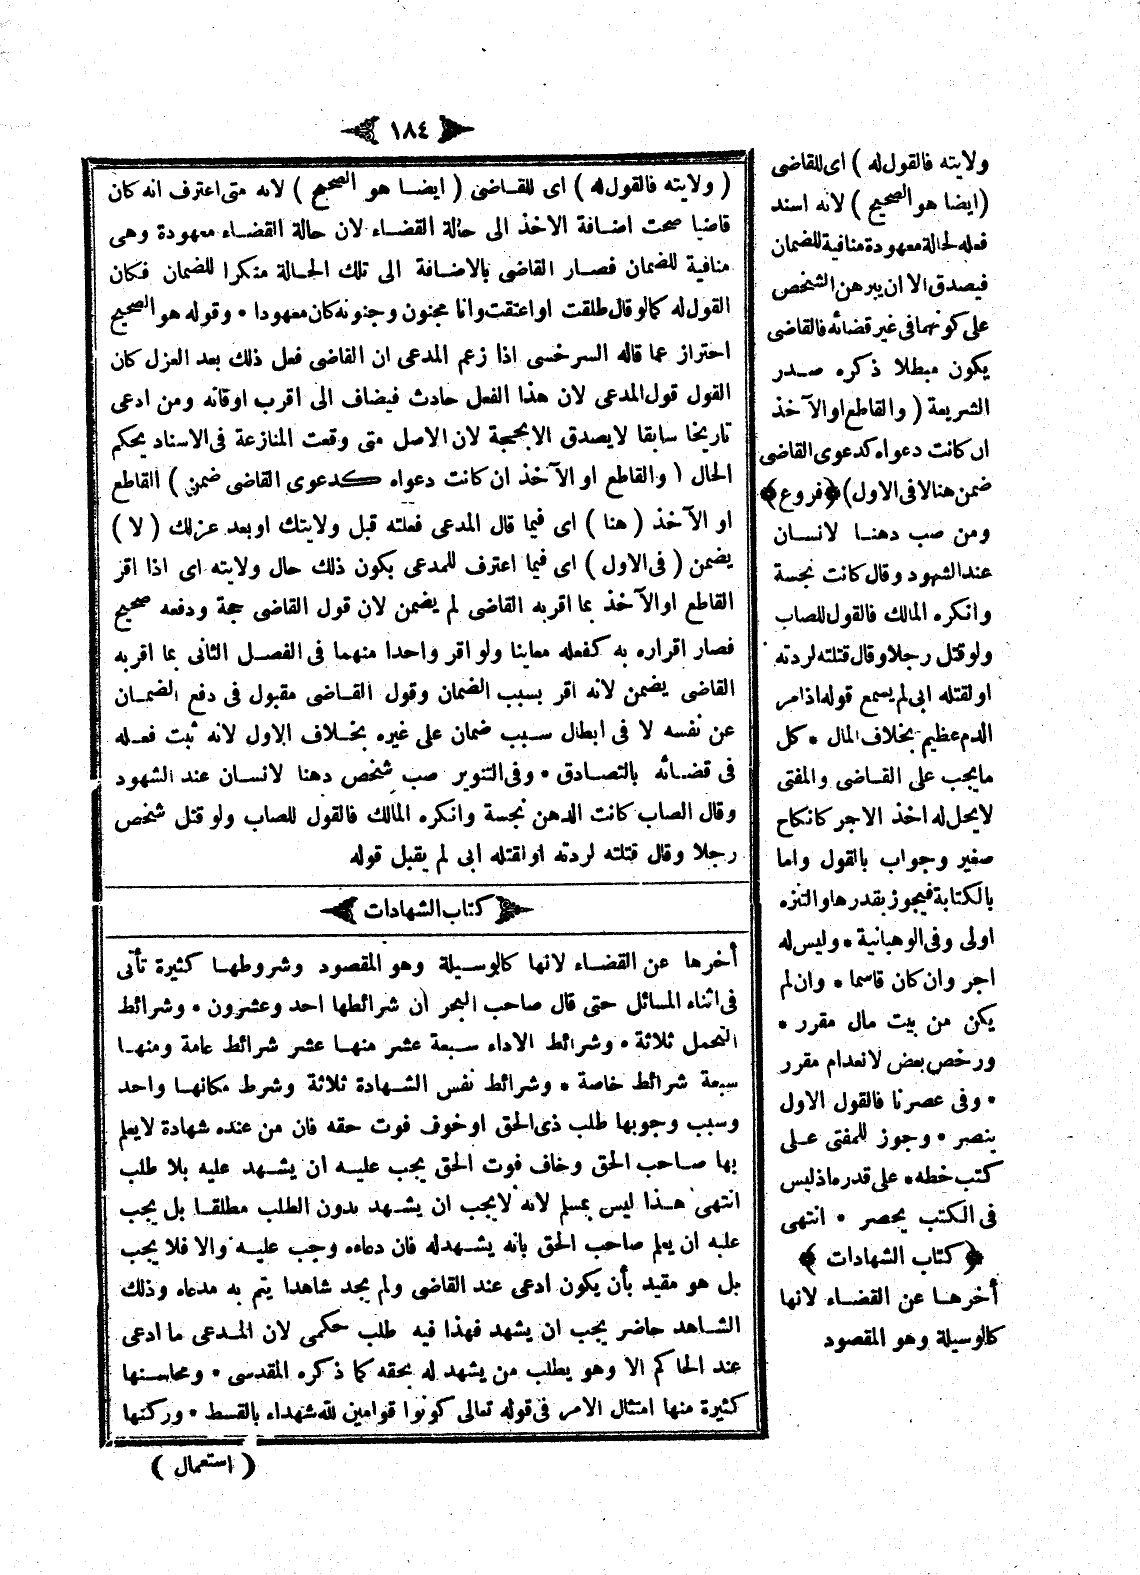 ١٨٤
( ولايته فالقول له ) اى للقاضى ( ايضا هو الصحيح ) لانه متى اعترف انه كان
قاضيا صحت اضافة الاخذ الى حالة القضاء لان حالة القضاء معهودة وهى
منافية للضمان فصار القاضى بالاضافة الى تلك الحالة منكرا للضمان فكان
القول له كالو قال طلقت او اعتقت وانا مجنون وجنونه كان معهودا * وقوله هو الصحيح
احتراز عما قاله السرخسى اذا زعم المدعى ان القاضى فعل ذلك بعد العزل كان
القول قول المدعى لان هذا الفعل حادث فيضاف الى اقرب اوقاته ومن ادعى
تاريخا سابقا لايصدق الابحجة لان الاصل متى وقعت المنازعة فى الاسناد يحكم
الحال ( والقاطع او الآخذ ان كانت دعواه كدعوى القاضى ضمن ) القاطع
او الآخذ ( هنا ) اى فيما قال المدعى فعلته قبل ولايتك او بعد عزلك ( لا )
يضمن ( فى الاول ) اى فيما اعترف للمدعى بكون ذلك حال ولايته اى اذا اقر
القاطع او الآخذ بما اقربه القاضى لم يضمن لان قول القاضى حجة ودفعه صحيح
فصار اقراره به كفعله معاينا ولو اقر واحدا منهما فى الفصل الثانى بما اقربه
القاضى يضمن لانه اقر بسبب الضمان وقول القاضى مقبول فى دفع الضمان
عن نفسه لا فى ابطال سبب ضمان على غيره بخلاف الاول لانه ثبت فعله
فى قضائه بالتصادق * وفى التنوير صب شخص دهنا لانسان عند الشهود
وقال الصاب كانت الدهن نجسة وانكره المالك فالقول للصاب ولو قتل شخص
رجلا وقال قتلته لردته او لقتله ابى لم يقبل قوله
كتاب الشهادات
أخرها عن القضاء لانها كالوسيلة وهو المقصود وشروطها كثيرة تأتى
فى اثناء المسائل حتى قال صاحب البحر أن شرائطها احد وعشرون * وشرائط
التحمل ثلاثة * وشرائط الاداء سبعة عشر منها عشر شرائط عامة ومنها
سبعة شرائط خاصة * وشرائط نفس الشهادة ثلاثة وشرط مكانها واحد
وسبب وجوبها طلب ذى الحق او خوف فوت حقه فان من عنده شهادة لايعلم
بها صاحب الحق وخاف فوت الحق يجب عليه ان يشهد عليه بلا طلب
انتهى هذا ليس بمسلم لانه لايجب ان يشهد بدون الطلب مطلقا بل يجب
عليه ان يعلم صاحب الحق بانه يشهدله فان دعاه وجب عليه والا فلا يجب
بل هو مقيد بأن يكون ادعى عند القاضى ولم يجد شاهدا يتم به مدعاه وذلك
الشاهد حاضر يجب ان يشهد فهذا فيه طلب حكمى لان المدعى ما ادعى
عند الحاكم الا وهو يطلب من يشهد له بحقه كما ذكره المقدسى * ومحاسنها
كثيرة منها امتثال الامر فى قوله تعالى كونوا قوامين لله شهداء بالقسط * وركنها
( استعمال )
ولايته فالقول له ) اى للقاضى
( ايضا هو الصحيح ) لانه اسند
فعله لحالة معهودة منافية للضمان
فيصدق الا ان يبرهن الشخص
على كونهما فى غير قضائه فالقاضى
يكون مبطلا ذكره صدر
الشريعة ( والقاطع او الآخذ
ان كانت دعواه كدعوى القاضى
ضمن هنا لا فى الاول ) ﴿ فروع ﴾
ومن صب دهنا لانسان
عند الشهود وقال كانت نجسة
وانكره المالك فالقول للصاب
ولو قتل رجلا وقال قتلته لردته
او لقتله ابى لم يسمع قوله اذ امر
الدم عظيم بخلاف المال * كل
مايجب على القاضى والمفتى
لايحل له اخذ الاجر كانكاح
صغير وجواب بالقول واما
بالكتابة فيجوز بقدرها والتنزه
اولى وفى الوهبانية * وليس له
اجر وان كان قاسما * وان لم
يكن من بيت مال مقرر *
ورخص بعض لانعدام مقرر
* وفى عصرنا فالقول الاول
ينصر * وجوز للمفتى على
كتب خطه * على قدره اذ ليس
فى الكتب يحصر * انتهى
﴿ كتاب الشهادات ﴾
أخرها عن القضاء لانها
كالوسيلة وهو المقصود